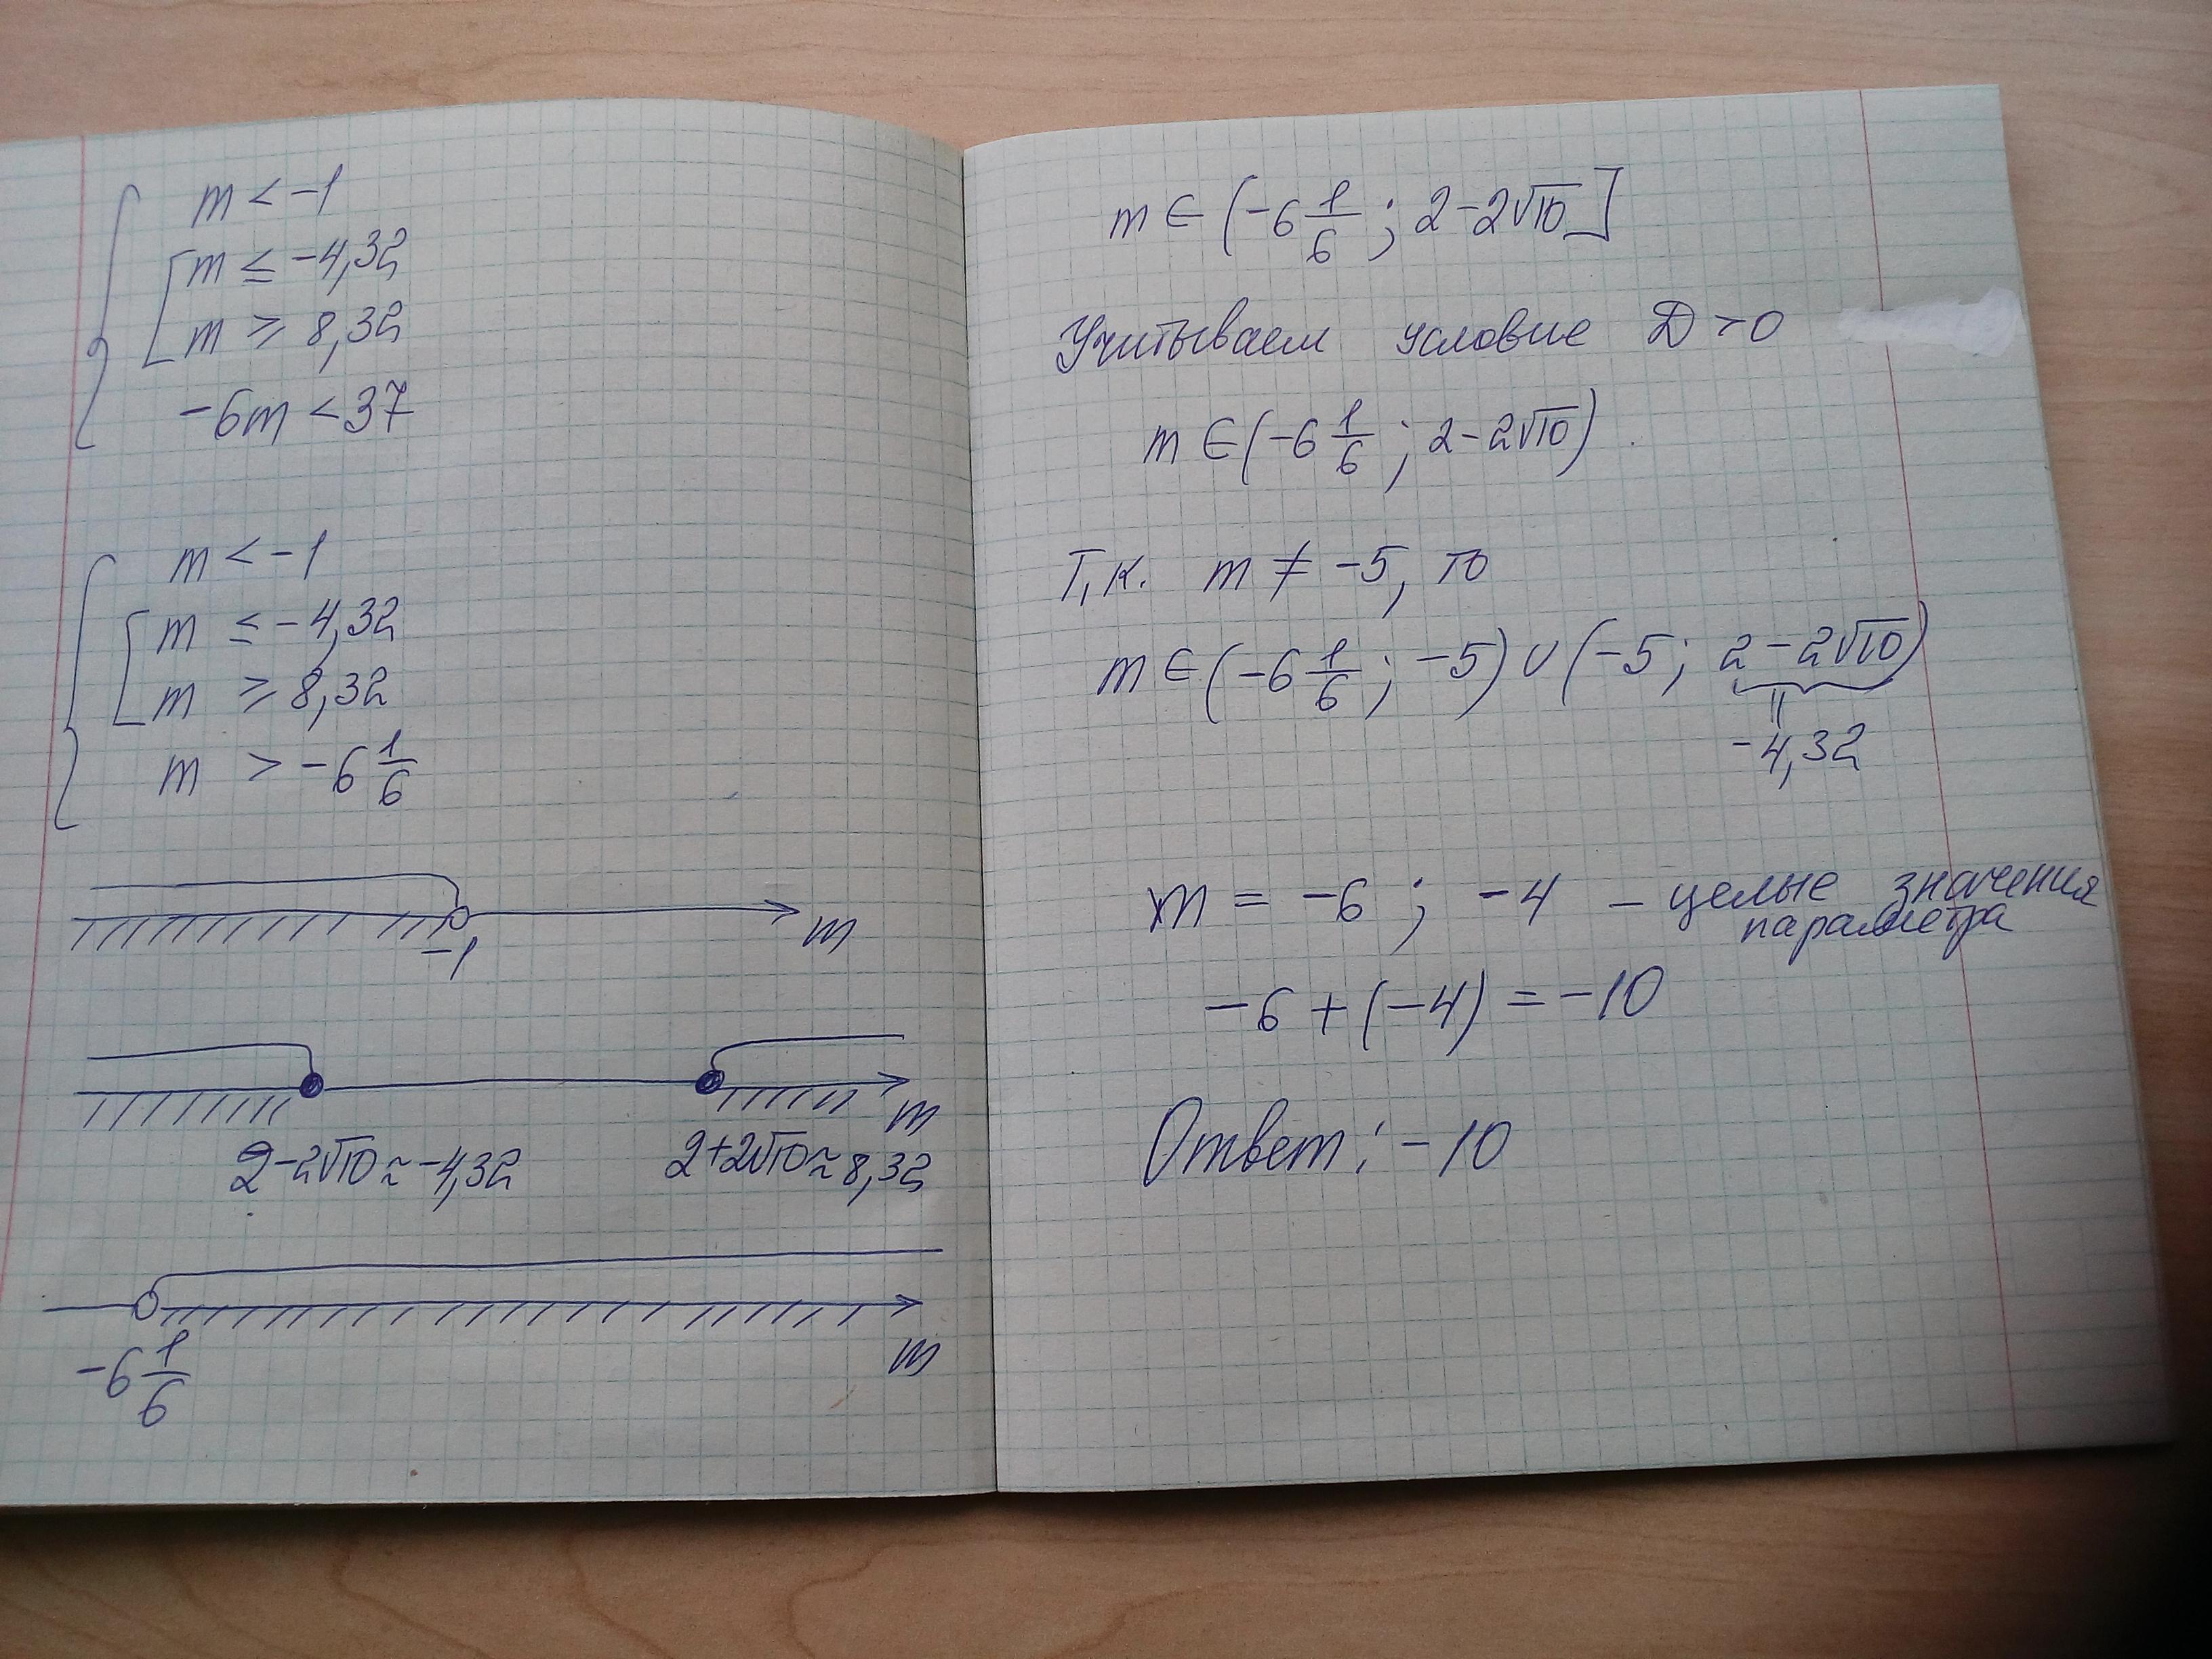 m < -1
m ≤ -4,32
m ≥ 8,32
-6m < 37
m < -1
m ≤ -4,32
m ≥ 8,32
m > -6 1/6
-1 m
m
2-2√10 ≈ -4,32 2+2√10 ≈ 8,32
m
-6 1/6
m ∈ (-6 1/6; 2-2√10]
Учитываем условие D > 0
m ∈ (-6 1/6; 2-2√10).
Т.к. m ≠ -5, то
m ∈ (-6 1/6; -5) ∪ (-5; 2-2√10)
=
-4,32
m = -6; -4 – целые значения
параметра
-6 + (-4) = -10
Ответ: -10